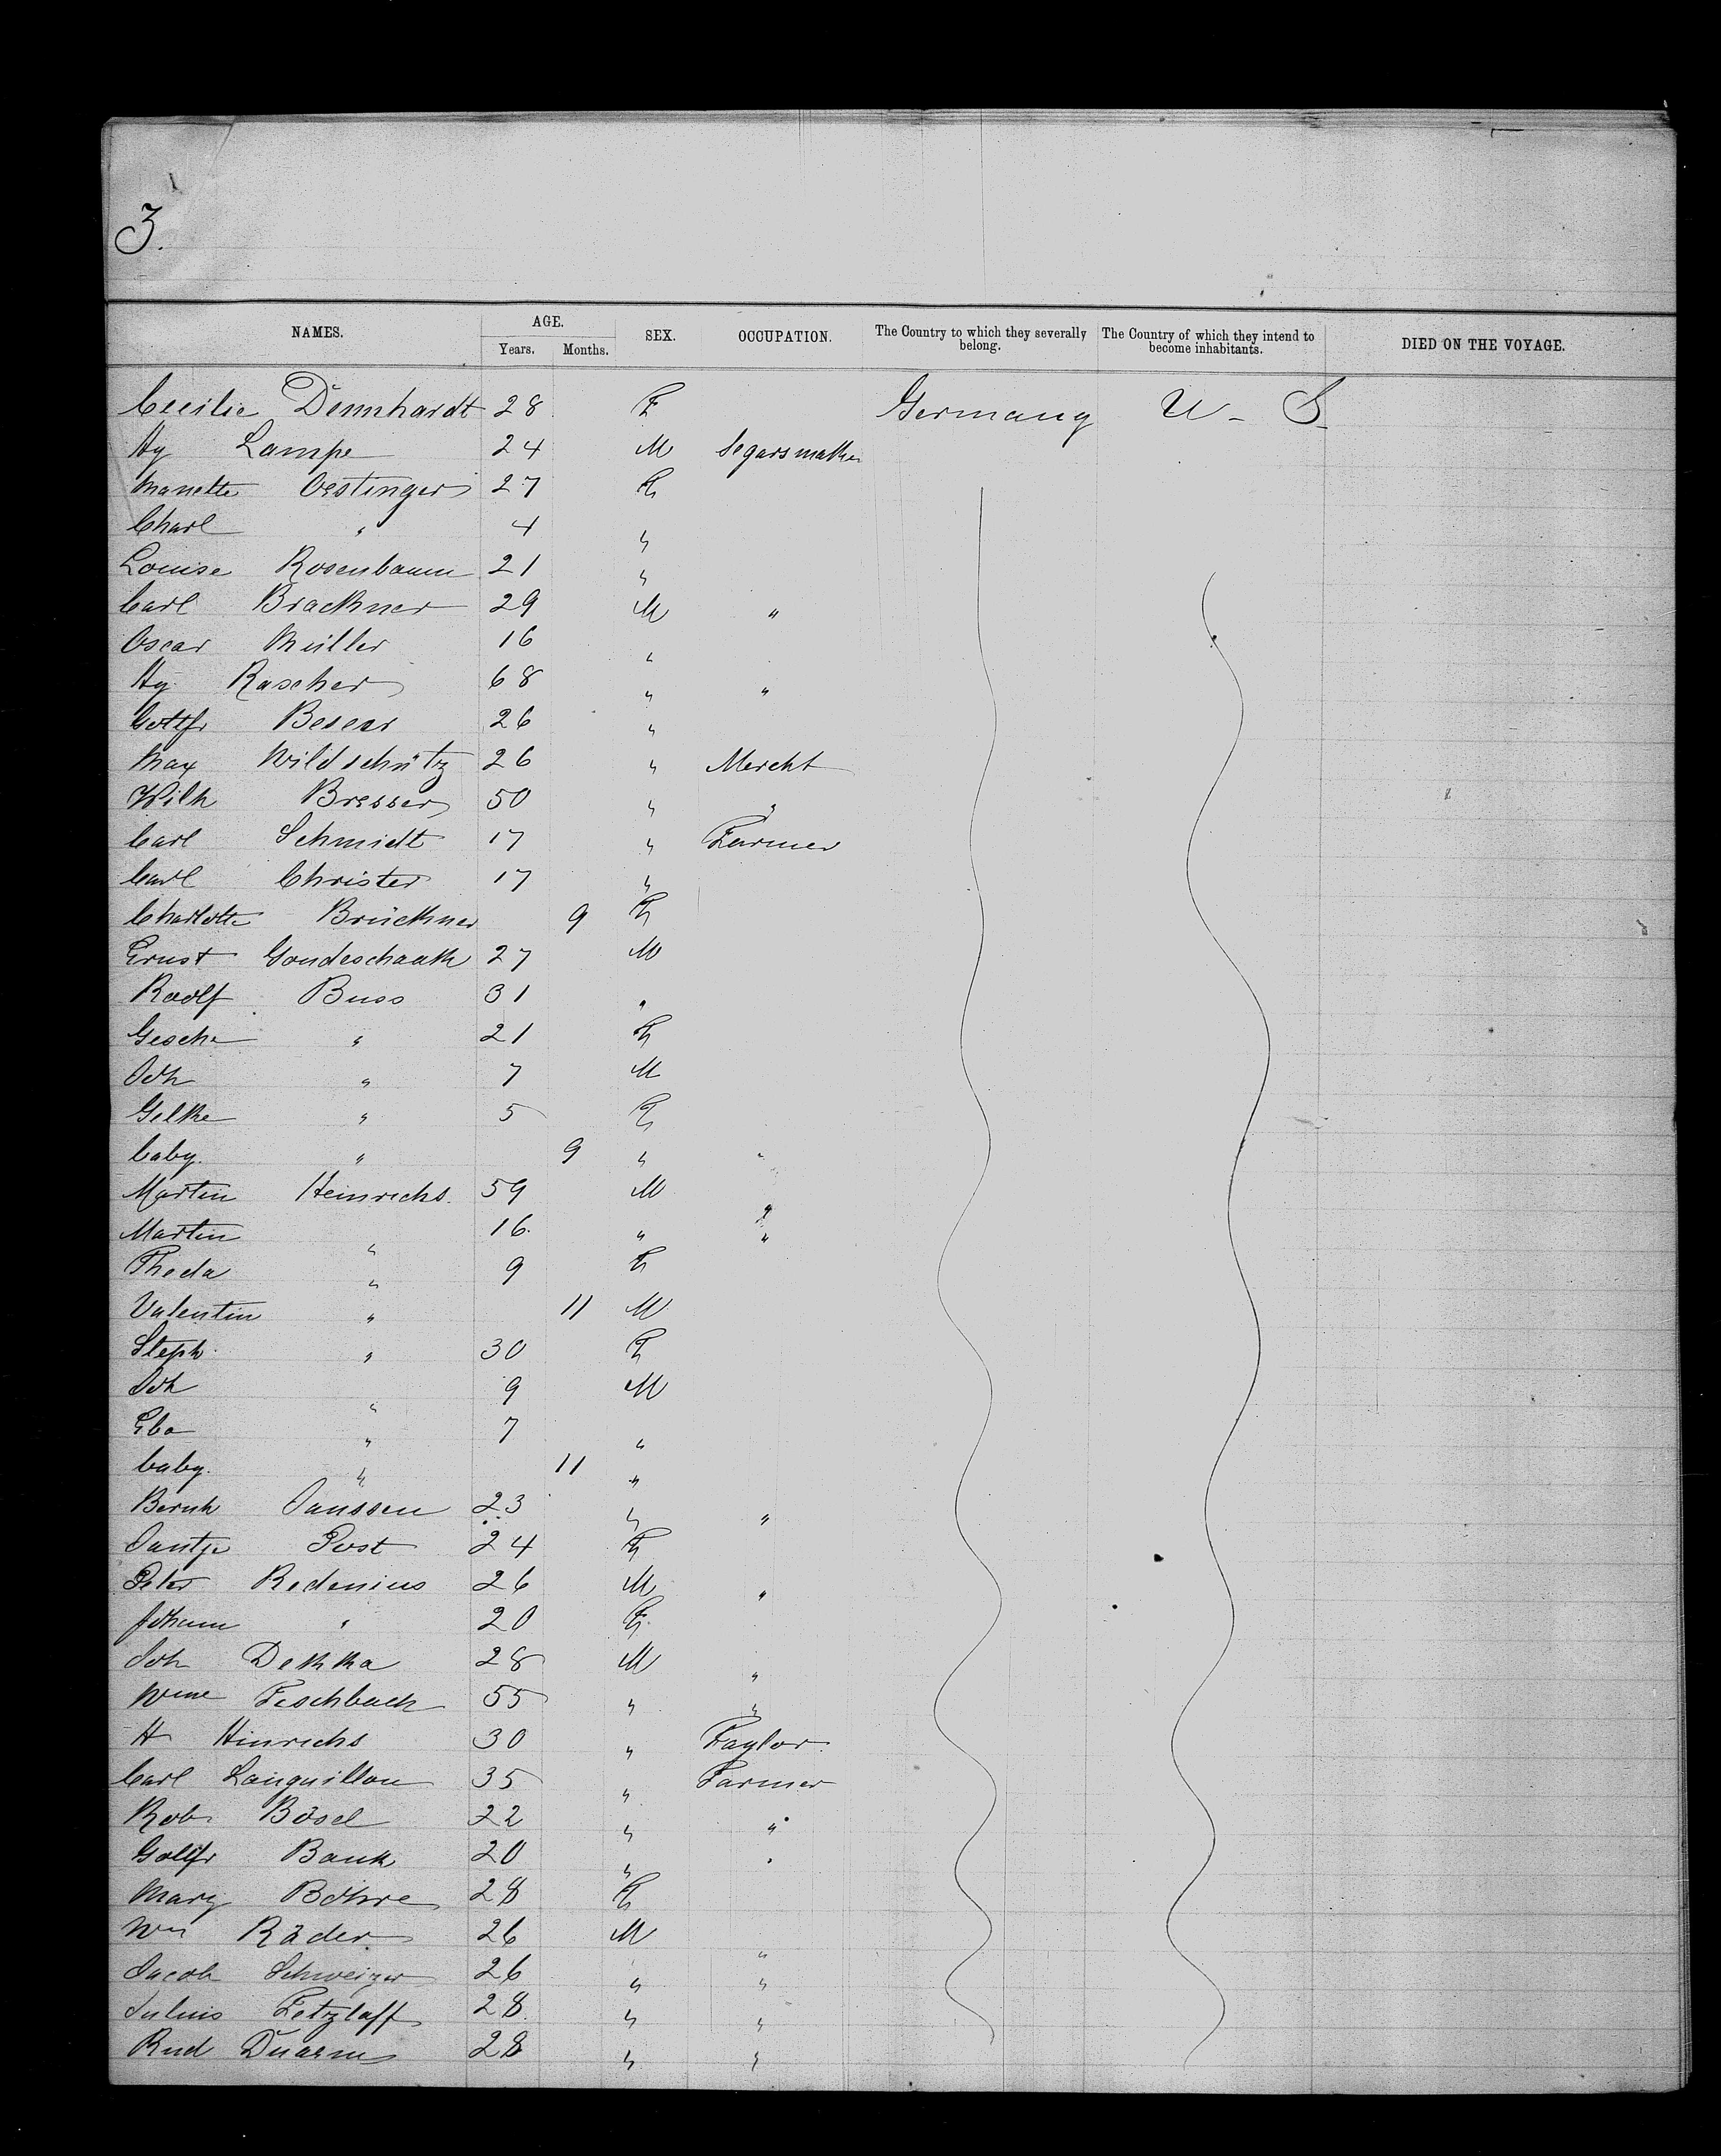 3.
NAMES. AGE. Years. Months. SEX. OCCUPATION. The Country to which they severally belong. The Country of which they intend to become inhabitants. DIED ON THE VOYAGE.
Cecilie Dennhardt 28 F Germany U - S
Hy Lampe 24 M Segarsmaker
Manette Oestinger 27 F
Charl " 4 "
Louise Rosenbaum 21 "
Carl Brackner 29 M "
Oscar Müller 16 "
Hy Rascher 68 " "
Gottfr Beseer 26 "
Max Wildschütz 26 " Mercht
Wilh Bresser 50 " "
Carl Schmidt 17 " Farmer
Carl Christer 17 "
Charlotte Brückner 9 F
Ernst Gondeschaatk 27 M
Roolf Buss 31 "
Gesche " 21 F
Joh " 7 M
Gelke " 5 F
baby. " 9 " "
Martin Heinrichs. 59 M "
Martin " 16. " "
Theda " 9 F
Valentin " 11 M
Steph. " 30 F
Joh " 9 M
Eba " 7 "
baby. " 11 "
Bernh Janssen 23 " "
Jantje Post 24 F
Peter Redenius 26 M "
Johann " 20 F.
Joh Dekka 28 M "
Wme Feschbach 55 " "
H Hinrichs 30 " Taylor.
Carl Languillon 35 " Farmer
Rob. Bösel 22 " "
Gottfr Bank 20 " "
Mary Böhre 28 F
Wm Räder 26 M "
Jacob Schweizer 26 " "
Julius Fetzlaff 28 " "
Rud 28 " "